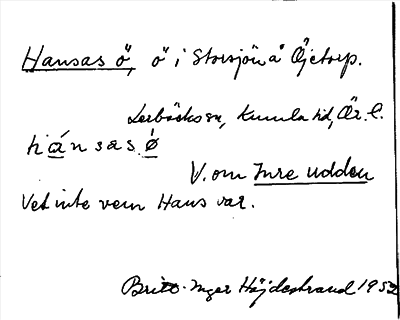 Hansas ö, ö i Storsjön å Öjetorp.
Lerbäcks sn, Kumla hd, Ör. l.
hánsasǿ
V. om Inre udden
Vet inte vem Hans var.
Britt-Inger Höjdestrand 1952